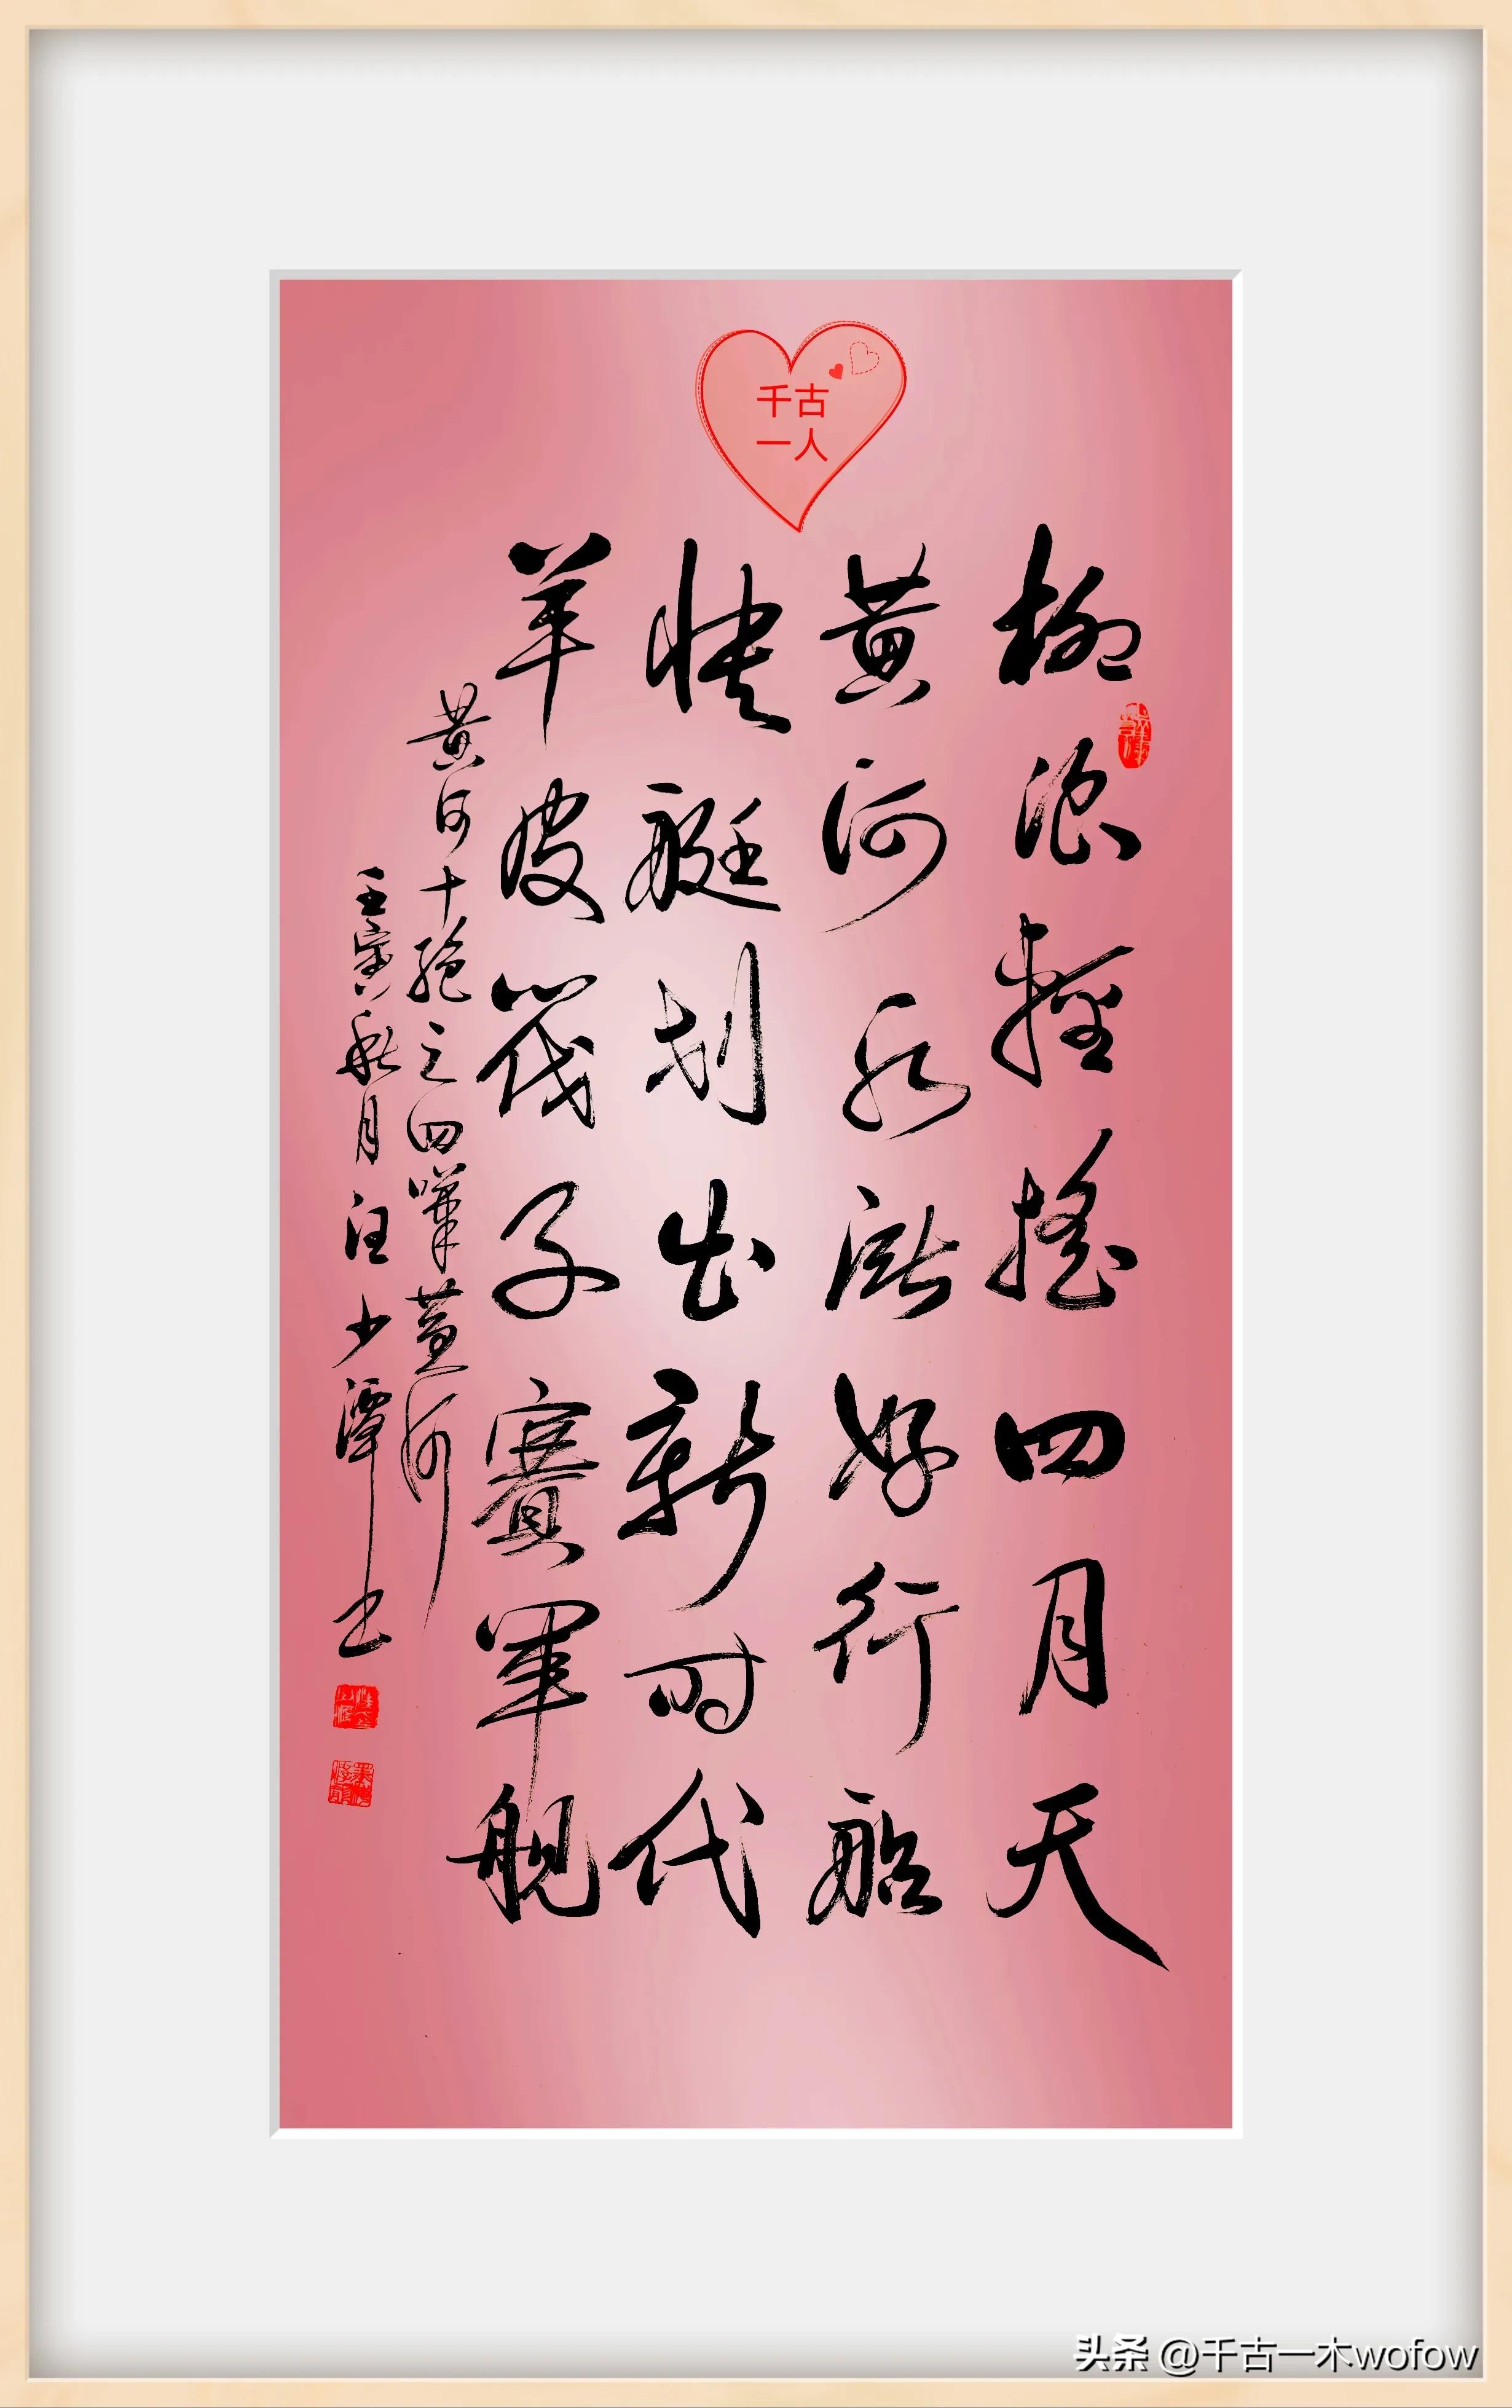 千古
一人
柳浪輕搖四月天
黄河水涨好行船
快艇划出新时代
羊皮筏子賽軍舰
黄河十絕之四黄河
壬寅秋月汪少潭书
头条 @千古一木wofow